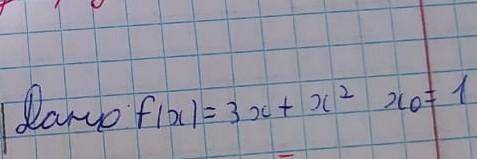 Дано f(x) = 3x + x² x₀ = 1